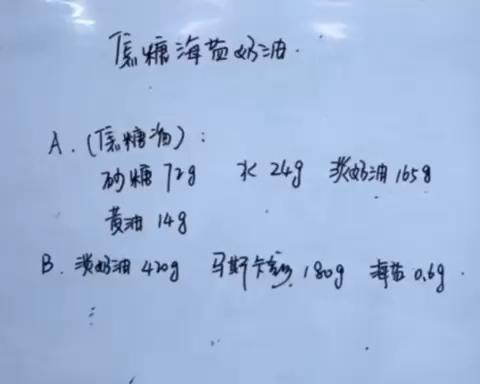 焦糖海盐奶油.
A. (焦糖酱):
砂糖 72g 水 24g 淡奶油 165g
黄油 14g
B. 淡奶油 420g 马斯卡 180g 海盐 0.6g.